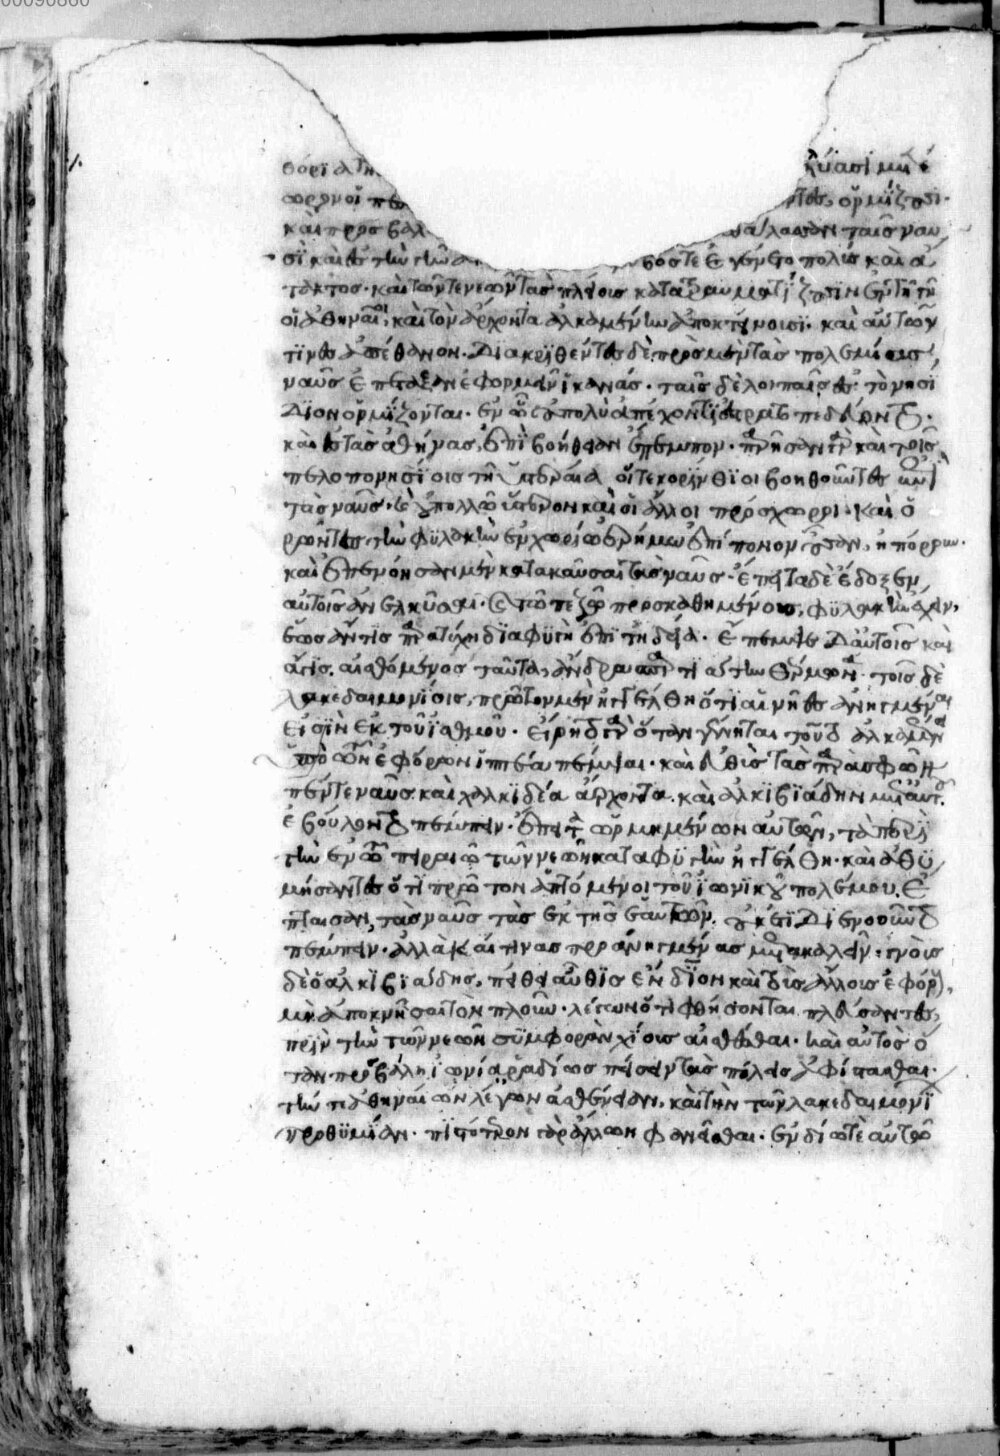 θόρια τῆς
ρῳνοὶ πε ὁρμίζουσι·
καὶ προσβαλ ταῖς ναυ
σὶ καὶ ἐς τὴν γῆν ἀ θόρυβός τε ἐγένετο πολὺς καὶ ἄ
τακτος· καὶ τῶν τε νεῶν τὰς πλείους κατατραυματίζουσιν ἐν τῇ γῇ
οἱ ἀθηναῖοι, καὶ τὸν ἄρχοντα ἀλκαμένην ἀποκτείνουσι· καὶ αὐτῶν
τινες ἀπέθανον. Διακριθέντες δὲ, πρὸς μὲν τὰς πολεμίους
ναῦς ἐπέταξαν ἐφορμεῖν ἱκανάς· ταῖς δὲ λοιπαῖς ἐς τὸ νησί
διον ὁρμίζονται· ἐν ᾧ οὐ πολὺ ἀπέχοντι ἐστρατοπεδεύοντο.
καὶ ἐς τὰς ἀθήνας, ἐπὶ βοήθειαν ἔπεμπον· παρῆσαν γὰρ καὶ τοῖς
πελοποννησίοις τῇ ὑστεραίᾳ οἵ τε κορίνθιοι βοηθοῦντες ἐπὶ
τὰς ναῦς· καὶ οὐ πολλῷ ὕστερον καὶ οἱ ἄλλοι πρόσχωροι· καὶ ὁ
ρῶντες τὴν φυλακὴν ἐν χωρίῳ ἐρήμῳ ἐπίπονον οὖσαν, ἠπόρουν.
καὶ ἐπενόησαν μὲν κατακαῦσαι τὰς ναῦς· ἔπειτα δὲ ἔδοξεν
αὐτοῖς ἀνελκῦσαι· καὶ τῷ πεζῷ προσκαθημένους, φυλακὴν ἔχειν,
ἕως ἄν τις παρατύχῃ διαφυγὴ ἐπιτηδεία· ἔπεμψε δ' αὐτοῖς καὶ
ἄγις. αἰσθόμενος ταῦτα, ἄνδρα σπαρτιάτην θέρμωνα· τοῖς δὲ
λακεδαιμονίοις, πρῶτον μὲν ἠγγέλθη ὅτι αἱ νῆες ἀνηγμέναι
εἰσὶν ἐκ τοῦ ἰσθμοῦ· εἴρητο γὰρ ὅταν γένηται τοῦτο ἀλκαμένει
ὑπὸ τῶν ἐφόρων ἱππέα πέμψαι· καὶ εὐθὺς τὰς παρὰ σφῶν
πέντε ναῦς. καὶ χαλκιδέα ἄρχοντα. καὶ ἀλκιβιάδην μετ' αὐτοῦ.
ἐβούλοντο πέμπειν· ἔπειτα ὡρμημένων αὐτῶν, τὰ περὶ
τὴν ἐν τῷ πειραιῷ τῶν νεῶν καταφυγὴν ἠγγέλθη· καὶ ἀθυ
μήσαντες ὅτι πρῶτον ἁπτόμενοι τοῦ ἰωνικοῦ πολέμου. ἔ
πταισαν, τὰς ναῦς τὰς ἐκ τῆς ἑαυτῶν. οὐκέτι διενοοῦντο
πέμπειν· ἀλλὰ καί τινας προανηγμένας μετακαλεῖν· γνοὺς
δὲ ὁ ἀλκιβιάδης, πείθει αὖθις ἔνδιον καὶ τοὺς ἄλλους ἐφόρους,
μὴ ἀποκνῆσαι τὸν πλοῦν· λέγων ὅτι φθήσονται πλεύσαντες,
πρὶν τὴν τῶν νεῶν συμφορὰν χίους αἰσθέσθαι· καὶ αὐτὸς ὅ
ταν προσβάλῃ ἰωνίᾳ ῥᾳδίως πείσειν τὰς πόλεις ἀφίστασθαι·
τήν τε ἀθηναίων λέγων ἀσθένειαν, καὶ τὴν τῶν λακεδαιμονί
ων προθυμίαν· πιστότερον γὰρ ἄλλων φανεῖσθαι· ἐνδίῳ τε αὐτῷ